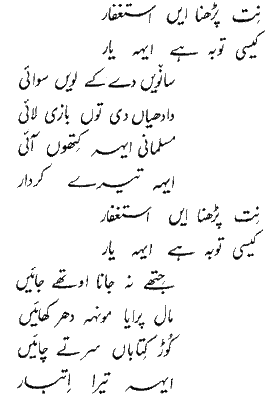 نِت پڑھنا ایں استغفار
کیسی توبہ ہے ایہہ یار
سانویں دے کے لویں سوائی
وادھیاں دی توں بازی لائی
مسلمانی ایہہ کِتھوں آئی
ایہہ تیرے کردار
نِت پڑھنا ایں استغفار
کیسی توبہ ہے ایہہ یار
جِتھے نہ جانا اوتھے جائیں
مال پرایا مونہہ دھر کھائیں
کُوڑ کِتاباں سر تے چائیں
ایہہ تیرا اِتبار